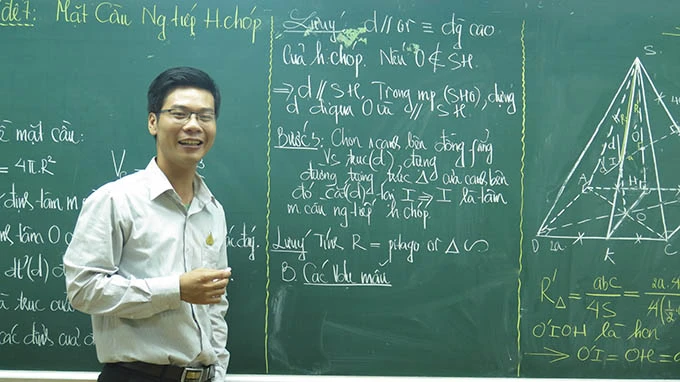 đề 7: Mặt Cầu Ng tiếp H.chóp
mặt cầu:
= 4π.R²
định tâm, m
tâm O
trục của
các đỉnh của đ
Lưu ý: d // or ≡ đg cao
của h.chóp. Nếu O ∉ SH.
⇒ d // SH. Trong mp (SHO), dựng
d đi qua O và // SH.
Bước 3: Chọn 1 cạnh bên đồng phẳng
vs trục (d), dựng
đường trung trực Δ của cạnh bên
đó cắt (d) tại I ⇒ I là tâm
m cầu ng tiếp h.chóp.
Lưu ý Tính R = pitago or Δ ∽
B. Các Ví dụ mẫu
S
A
H
D
2a
K
C
R'Δ = abc / 4S =
O'IOH là hcn
→ O'I = OH =